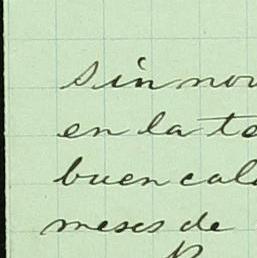 sin nov
en la te
buen cal
meses de